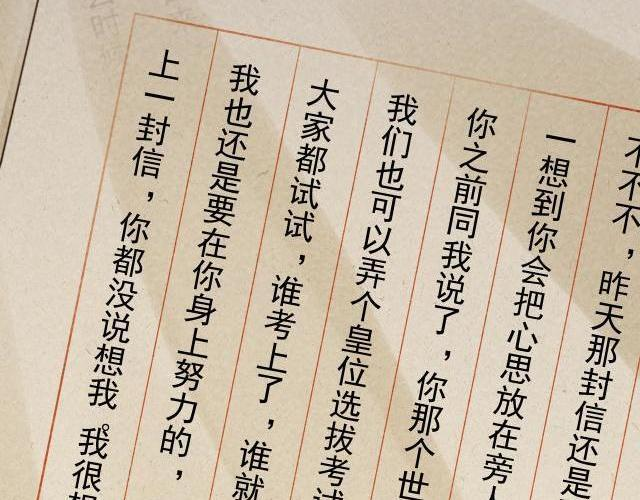 不不不，昨天那封信还是
一想到你会把心思放在旁人
你之前同我说了，你那个世
我们也可以弄个皇位选拔考试
大家都试试，谁考上了，谁就
我也还是要在你身上努力的，
上一封信，你都没说想我。我很想